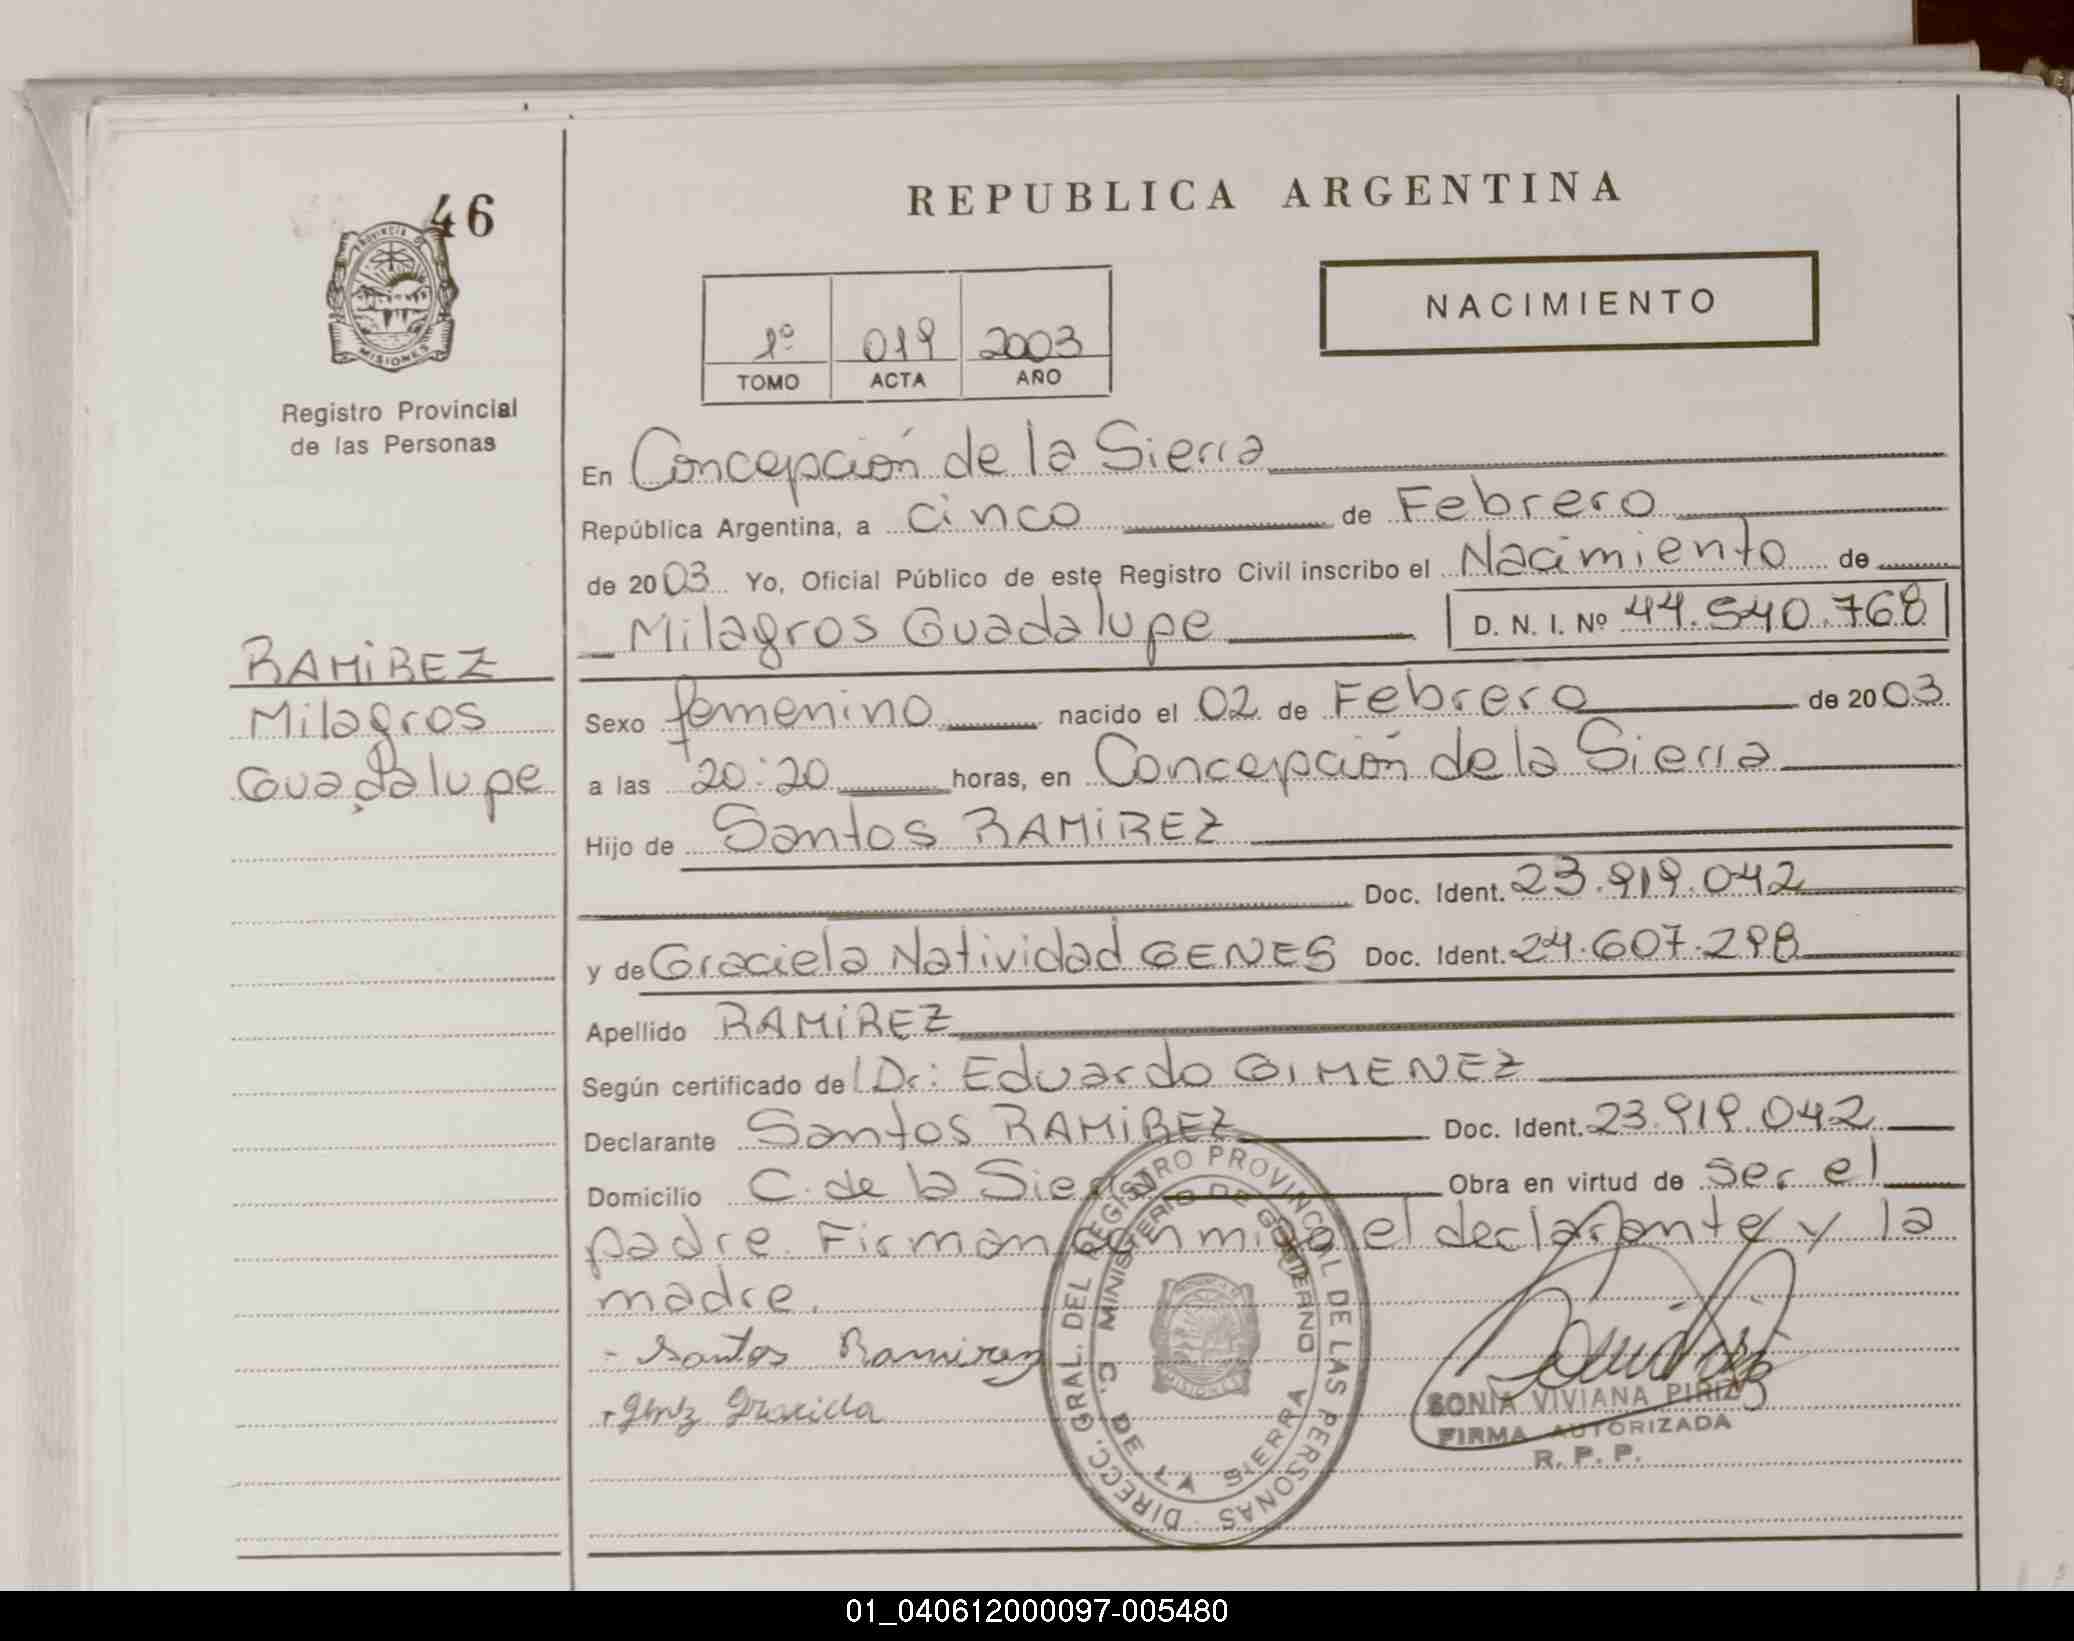 46
PROVINCIA DE
MISIONES
Registro Provincial
de las Personas
RAMIREZ
Milagros
Guadalupe
REPUBLICA ARGENTINA
NACIMIENTO
1º 019 2003
TOMO ACTA AÑO
En Concepción de la Sierra
República Argentina, a cinco de Febrero
de 2003 Yo, Oficial Público de este Registro Civil inscribo el Nacimiento de
Milagros Guadalupe D. N. I. Nº 44.540.768
Sexo femenino nacido el 02 de Febrero de 2003
a las 20:20 horas, en Concepción de la Sierra
Hijo de Santos RAMIREZ
Doc. Ident. 23.919.042
y de Graciela Natividad GENES Doc. Ident. 24.607.298
Apellido RAMIREZ
Según certificado de Dr: Eduardo GIMENEZ
Declarante Santos RAMIREZ Doc. Ident. 23.919.042
Domicilio C. de la Sierra Obra en virtud de ser el
padre. Firman conmigo el declarante y la
madre.
- Santos Ramirez
Graciela
DIRECC. GRAL. DEL REGISTRO PROVINCIAL DE LAS PERSONAS
MINISTERIO DE GOBIERNO
C. DE LA SIERRA
MISIONES
SONIA VIVIANA PIRIZ
FIRMA AUTORIZADA
R. P. P.
01_040612000097-005480